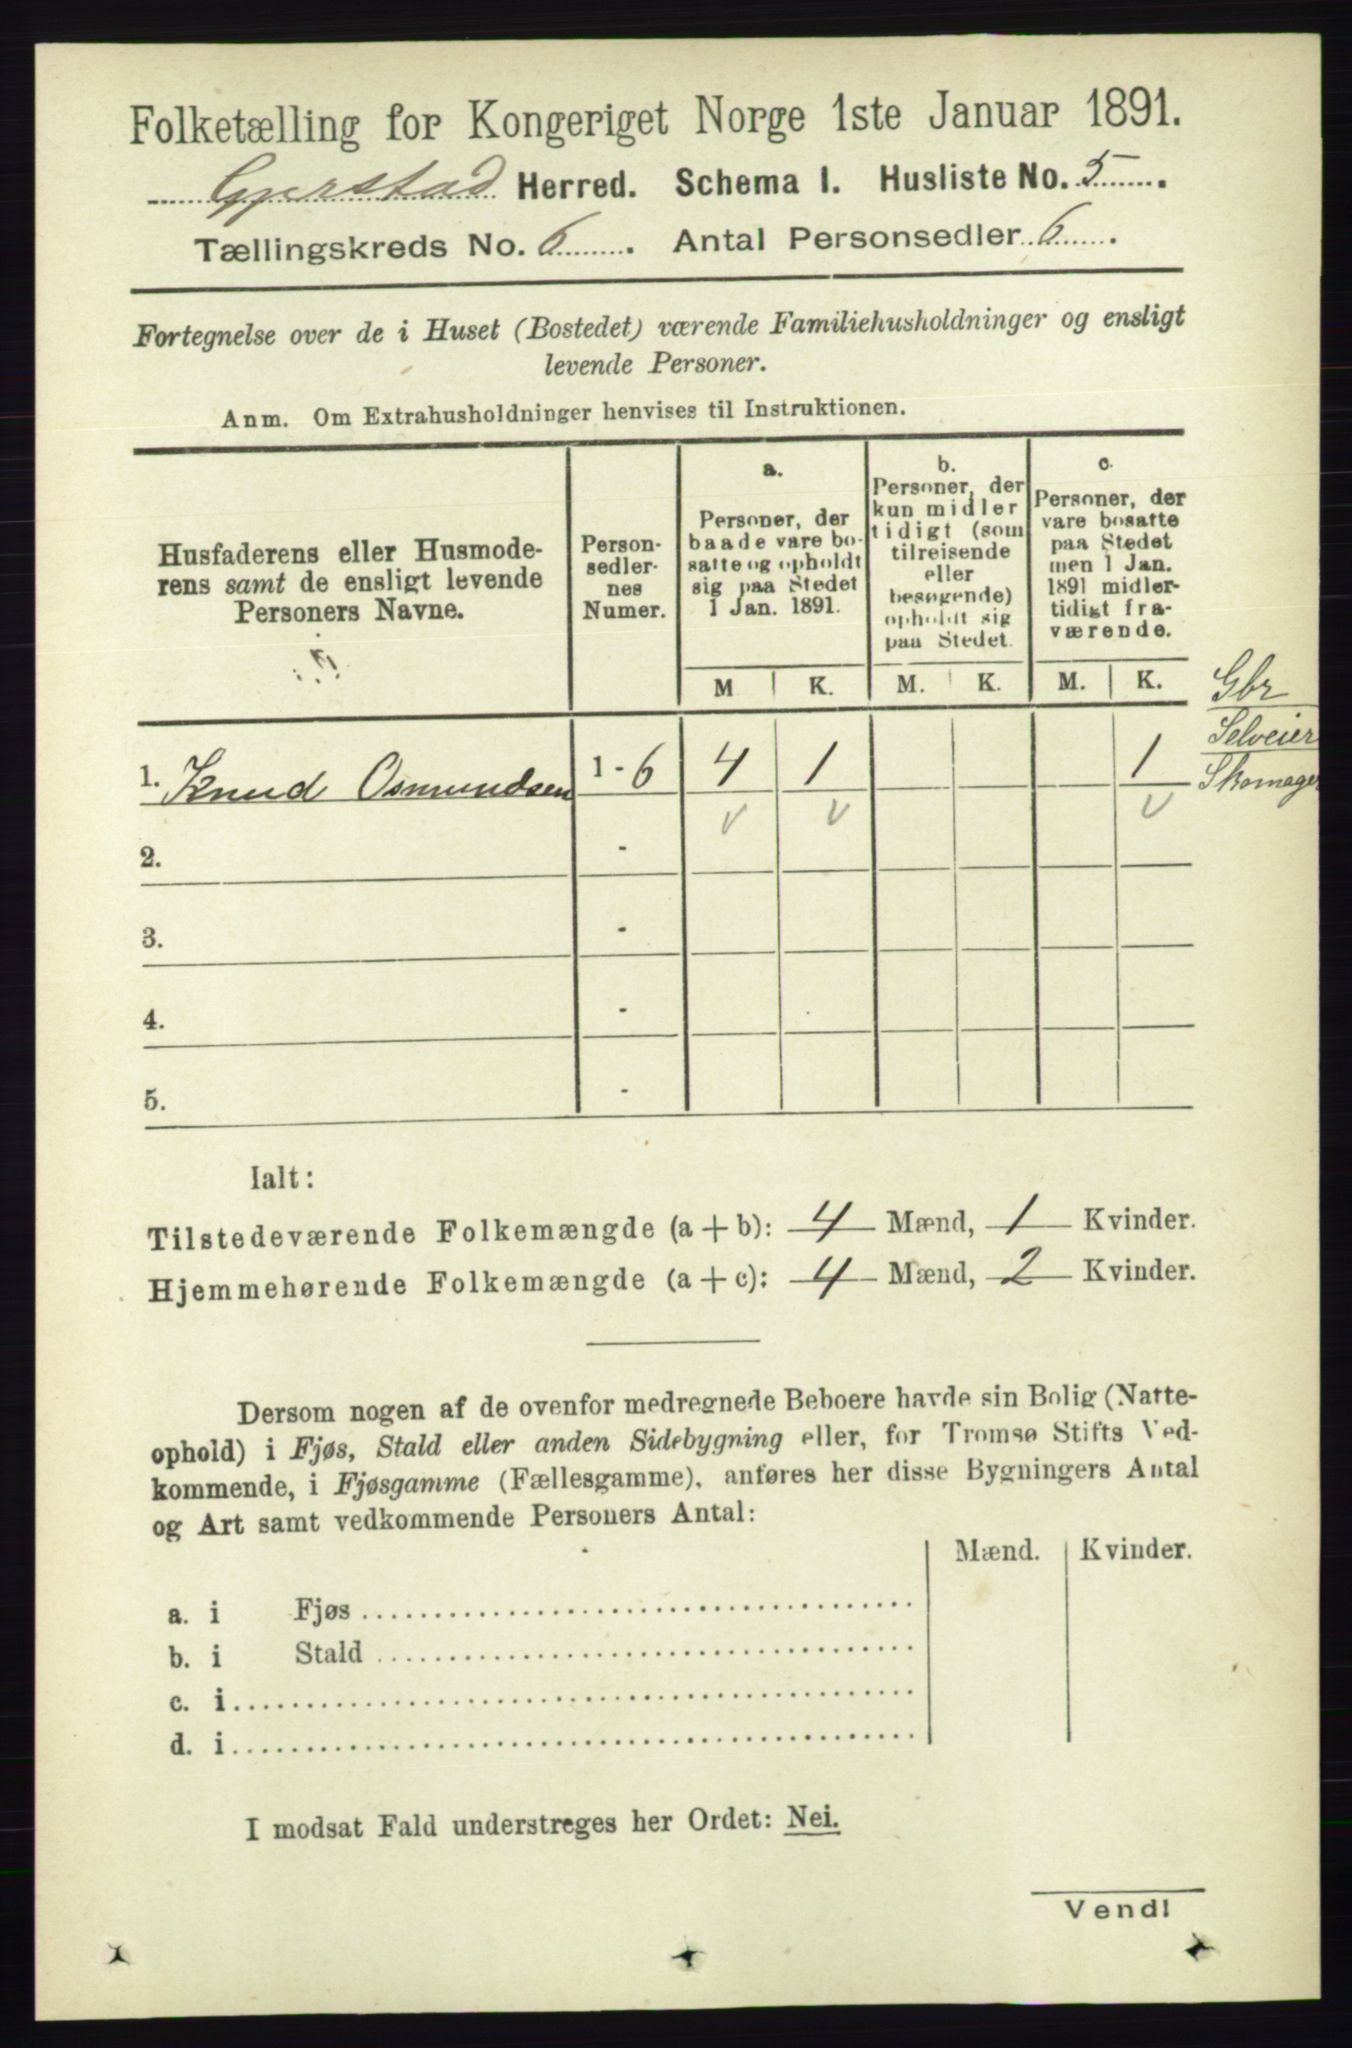 Folketælling for Kongeriget Norge 1ste Januar 1891.
Gjerstad Herred. Schema 1. Husliste No. 5.
Tællingskreds No. 6. Antal Personsedler 6.
Fortegnelse over de i Huset (Bostedet) værende Familiehusholdninger og ensligt
levende Personer.
Anm. Om Extrahusholdninger henvises til Instruktionen.
Husfaderens eller Husmode-
rens samt de ensligt levende
Personers Navne.
Person-
sedler-
nes
Numer.
a.
Personer, der
baade vare bo-
satte og opholdt
sig paa Stedet
1 Jan. 1891.
b.
Personer, der
kun midler
tidigt (som
tilreisende
eller
besøgende)
opholdt sig
paa Stedet.
c.
Personer, der
vare bosatte
paa Stedet
men 1 Jan.
1891 midler-
tidigt fra-
værende.
M K. M. K. M. K.
Gbr
Selveier
Skomager
1. Knud Osmundsen 1 - 6 4 1 1
v v v
2. -
3. -
4. -
5. -
Ialt:
Tilstedeværende Folkemængde (a + b): 4 Mænd, 1 Kvinder.
Hjemmehørende Folkemængde (a + c): 4 Mænd, 2 Kvinder.
Dersom nogen af de ovenfor medregnede Beboere havde sin Bolig (Natte-
ophold) i Fjøs, Stald eller anden Sidebygning eller, for Tromsø Stifts Ved-
kommende, i Fjøsgamme (Fællesgamme), anføres her disse Bygningers Antal
og Art samt vedkommende Personers Antal:
Mænd. Kvinder.
a. i Fjøs
b. i Stald
c. i
d. i
I modsat Fald understreges her Ordet: Nei.
Vend!